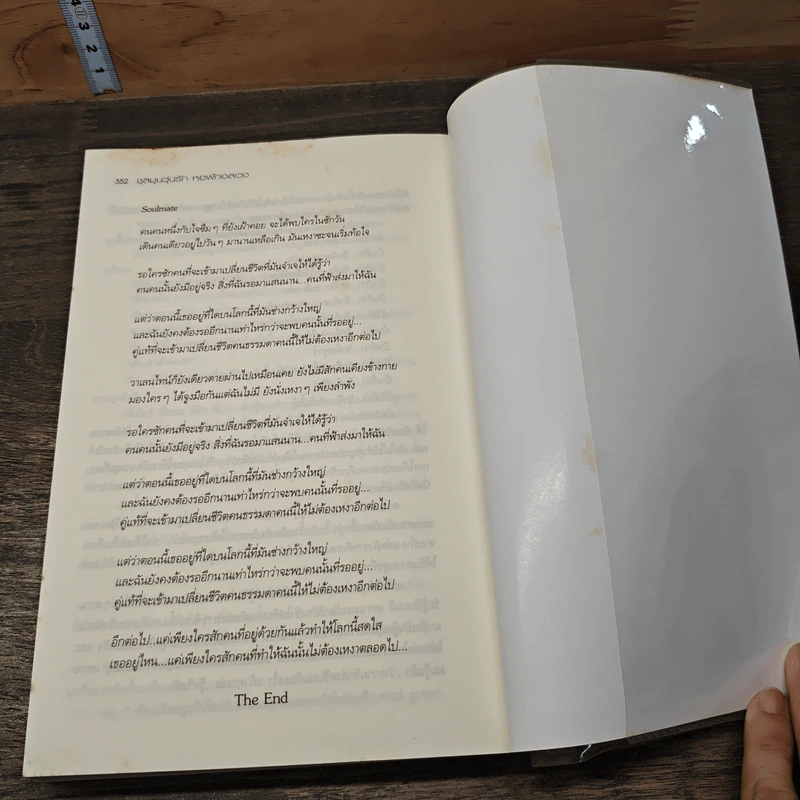 4 3 2 1
352 ชุลมุนวุ่นรัก หอพักอลเวง
Soulmate
คนคนหนึ่งกับใจซึม ๆ ที่ยังเฝ้าคอย จะได้พบใครในซักวัน
เดินคนเดียวอยู่ไปวัน ๆ มานานเหลือเกิน มันเหงาซะจนเริ่มท้อใจ
รอใครซักคนที่จะเข้ามาเปลี่ยนชีวิตที่มันจำเจให้ได้รู้ว่า
คนคนนั้นยังมีอยู่จริง สิ่งที่ฉันรอมาแสนนาน...คนที่ฟ้าส่งมาให้ฉัน
แต่ว่าตอนนี้เธออยู่ที่ใดบนโลกนี้ที่มันช่างกว้างใหญ่
และฉันยังคงต้องรออีกนานเท่าไหร่กว่าจะพบคนนั้นที่รออยู่...
คู่แท้ที่จะเข้ามาเปลี่ยนชีวิตคนธรรมดาคนนี้ให้ไม่ต้องเหงาอีกต่อไป
วาเลนไทน์ก็ยังเดียวดายผ่านไปเหมือนเคย ยังไม่มีสักคนเคียงข้างกาย
มองใคร ๆ ได้จูงมือกันแต่ฉันไม่มี ยังนั่งเหงา ๆ เพียงลำพัง
รอใครซักคนที่จะเข้ามาเปลี่ยนชีวิตที่มันจำเจให้ได้รู้ว่า
คนคนนั้นยังมีอยู่จริง สิ่งที่ฉันรอมาแสนนาน...คนที่ฟ้าส่งมาให้ฉัน
แต่ว่าตอนนี้เธออยู่ที่ใดบนโลกนี้ที่มันช่างกว้างใหญ่
และฉันยังคงต้องรออีกนานเท่าไหร่กว่าจะพบคนนั้นที่รออยู่...
คู่แท้ที่จะเข้ามาเปลี่ยนชีวิตคนธรรมดาคนนี้ให้ไม่ต้องเหงาอีกต่อไป
แต่ว่าตอนนี้เธออยู่ที่ใดบนโลกนี้ที่มันช่างกว้างใหญ่
และฉันยังคงต้องรออีกนานเท่าไหร่กว่าจะพบคนนั้นที่รออยู่...
คู่แท้ที่จะเข้ามาเปลี่ยนชีวิตคนธรรมดาคนนี้ให้ไม่ต้องเหงาอีกต่อไป
อีกต่อไป...แค่เพียงใครสักคนที่อยู่ด้วยกันแล้วทำให้โลกนี้สดใส
เธออยู่ไหน...แค่เพียงใครสักคนที่ทำให้ฉันนั้นไม่ต้องเหงาตลอดไป...
The End